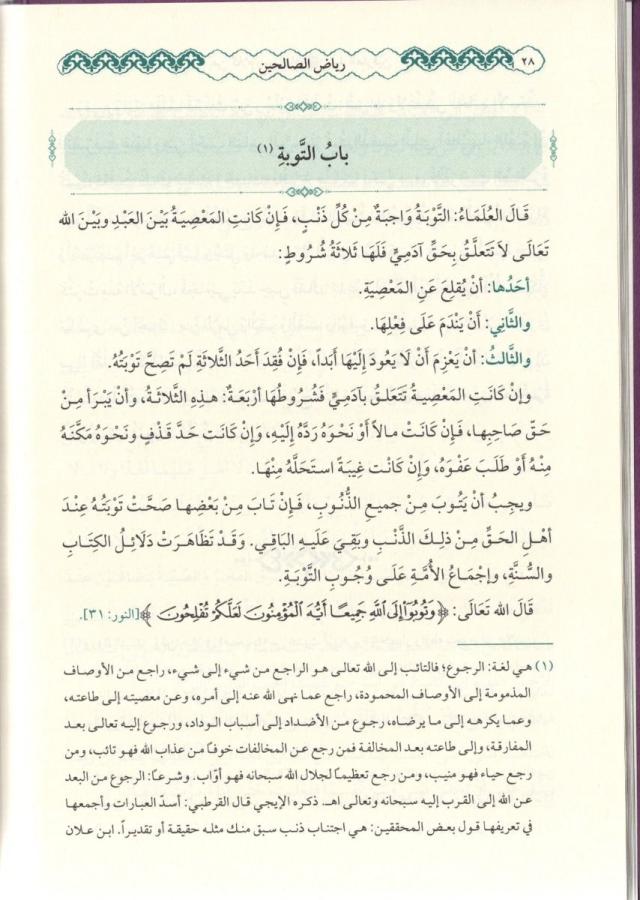 ٢٨
رياض الصالحين
بابُ التَّوبةِ (١)
قَالَ العُلَمَاءُ: التَّوْبَةُ وَاجِبَةٌ مِنْ كُلِّ ذَنْبٍ، فَإِنْ كَانَتِ المَعْصِيَةُ بَيْنَ العَبْدِ وبَيْنَ اللهِ
تَعَالَى لاَ تَتَعلَّقُ بِحَقِّ آدَمِيٍّ فَلَهَا ثَلاثَةُ شُرُوطٍ:
أحَدُها: أنْ يُقلِعَ عَنِ المَعْصِيَةِ.
والثَّانِي: أَنْ يَنْدَمَ عَلَى فِعْلِهَا.
والثَّالثُ: أنْ يَعْزِمَ أَنْ لَا يَعودَ إِلَيْهَا أَبَداً، فَإِنْ فُقِدَ أَحَدُ الثَّلاثَةِ لَمْ تَصِحَّ تَوْبَتُهُ.
وإنْ كَانَتِ المَعْصِيةُ تَتَعَلَقُ بآدَمِيٍّ فَشُرُوطُهَا أرْبَعَةٌ: هذِهِ الثَّلاثَةُ، وأنْ يَبْرَأ مِنْ
حَقِّ صَاحِبِها، فَإِنْ كَانَتْ مالاً أَوْ نَحْوَهُ رَدَّهُ إِلَيْهِ، وَإِنْ كَانَت حَدَّ قَذْفٍ ونَحْوَهُ مَكَّنَهُ
مِنْهُ أَوْ طَلَبَ عَفْوَهُ، وَإِنْ كَانْت غِيبَةً استَحَلَّهُ مِنْهَا.
ويجِبُ أنْ يَتُوبَ مِنْ جميعِ الذُّنُوبِ، فَإِنْ تَابَ مِنْ بَعْضِها صَحَّتْ تَوْبَتُهُ عِنْدَ
أهْلِ الحَقِّ مِنْ ذلِكَ الذَّنْبِ وبَقِيَ عَلَيهِ البَاقي. وَقَدْ تَظَاهَرَتْ دَلَائِلُ الكِتَابِ
والسُّنَّةِ، وإجْمَاعُ الأُمَّةِ عَلَى وُجُوبِ التَّوْبَةِ.
قَالَ اللهُ تَعَالَى: ﴿وَتُوبُوٓا۟ إِلَى ٱللَّهِ جَمِيعًا أَيُّهَ ٱلْمُؤْمِنُونَ لَعَلَّكُمْ تُفْلِحُونَ﴾ [النور: ٣١].
(١) هي لغة: الرجوع؛ فالتائب إلى الله تعالى هو الراجع من شيء إلى شيء، راجع من الأوصاف
المذمومة إلى الأوصاف المحمودة، راجع عما نهى الله عنه إلى أمره، وعن معصيته إلى طاعته،
وعما يكرهه إلى ما يرضاه، رجوع من الأضداد إلى أسباب الوداد، ورجوع إليه تعالى بعد
المفارقة، وإلى طاعته بعد المخالفة فمن رجع عن المخالفات خوفًا من عذاب الله فهو تائب، ومن
رجع حياء فهو منيب، ومن رجع تعظيمًا لجلال الله سبحانه فهو أوّاب. وشرعًا: الرجوع من البعد
عن الله إلى القرب إليه سبحانه وتعالى اهـ. ذكره الإيجي قال القرطبي: أسدّ العبارات وأجمعها
في تعريفها قول بعض المحققين: هي اجتناب ذنب سبق منك مثله حقيقة أو تقديراً. ابن علان